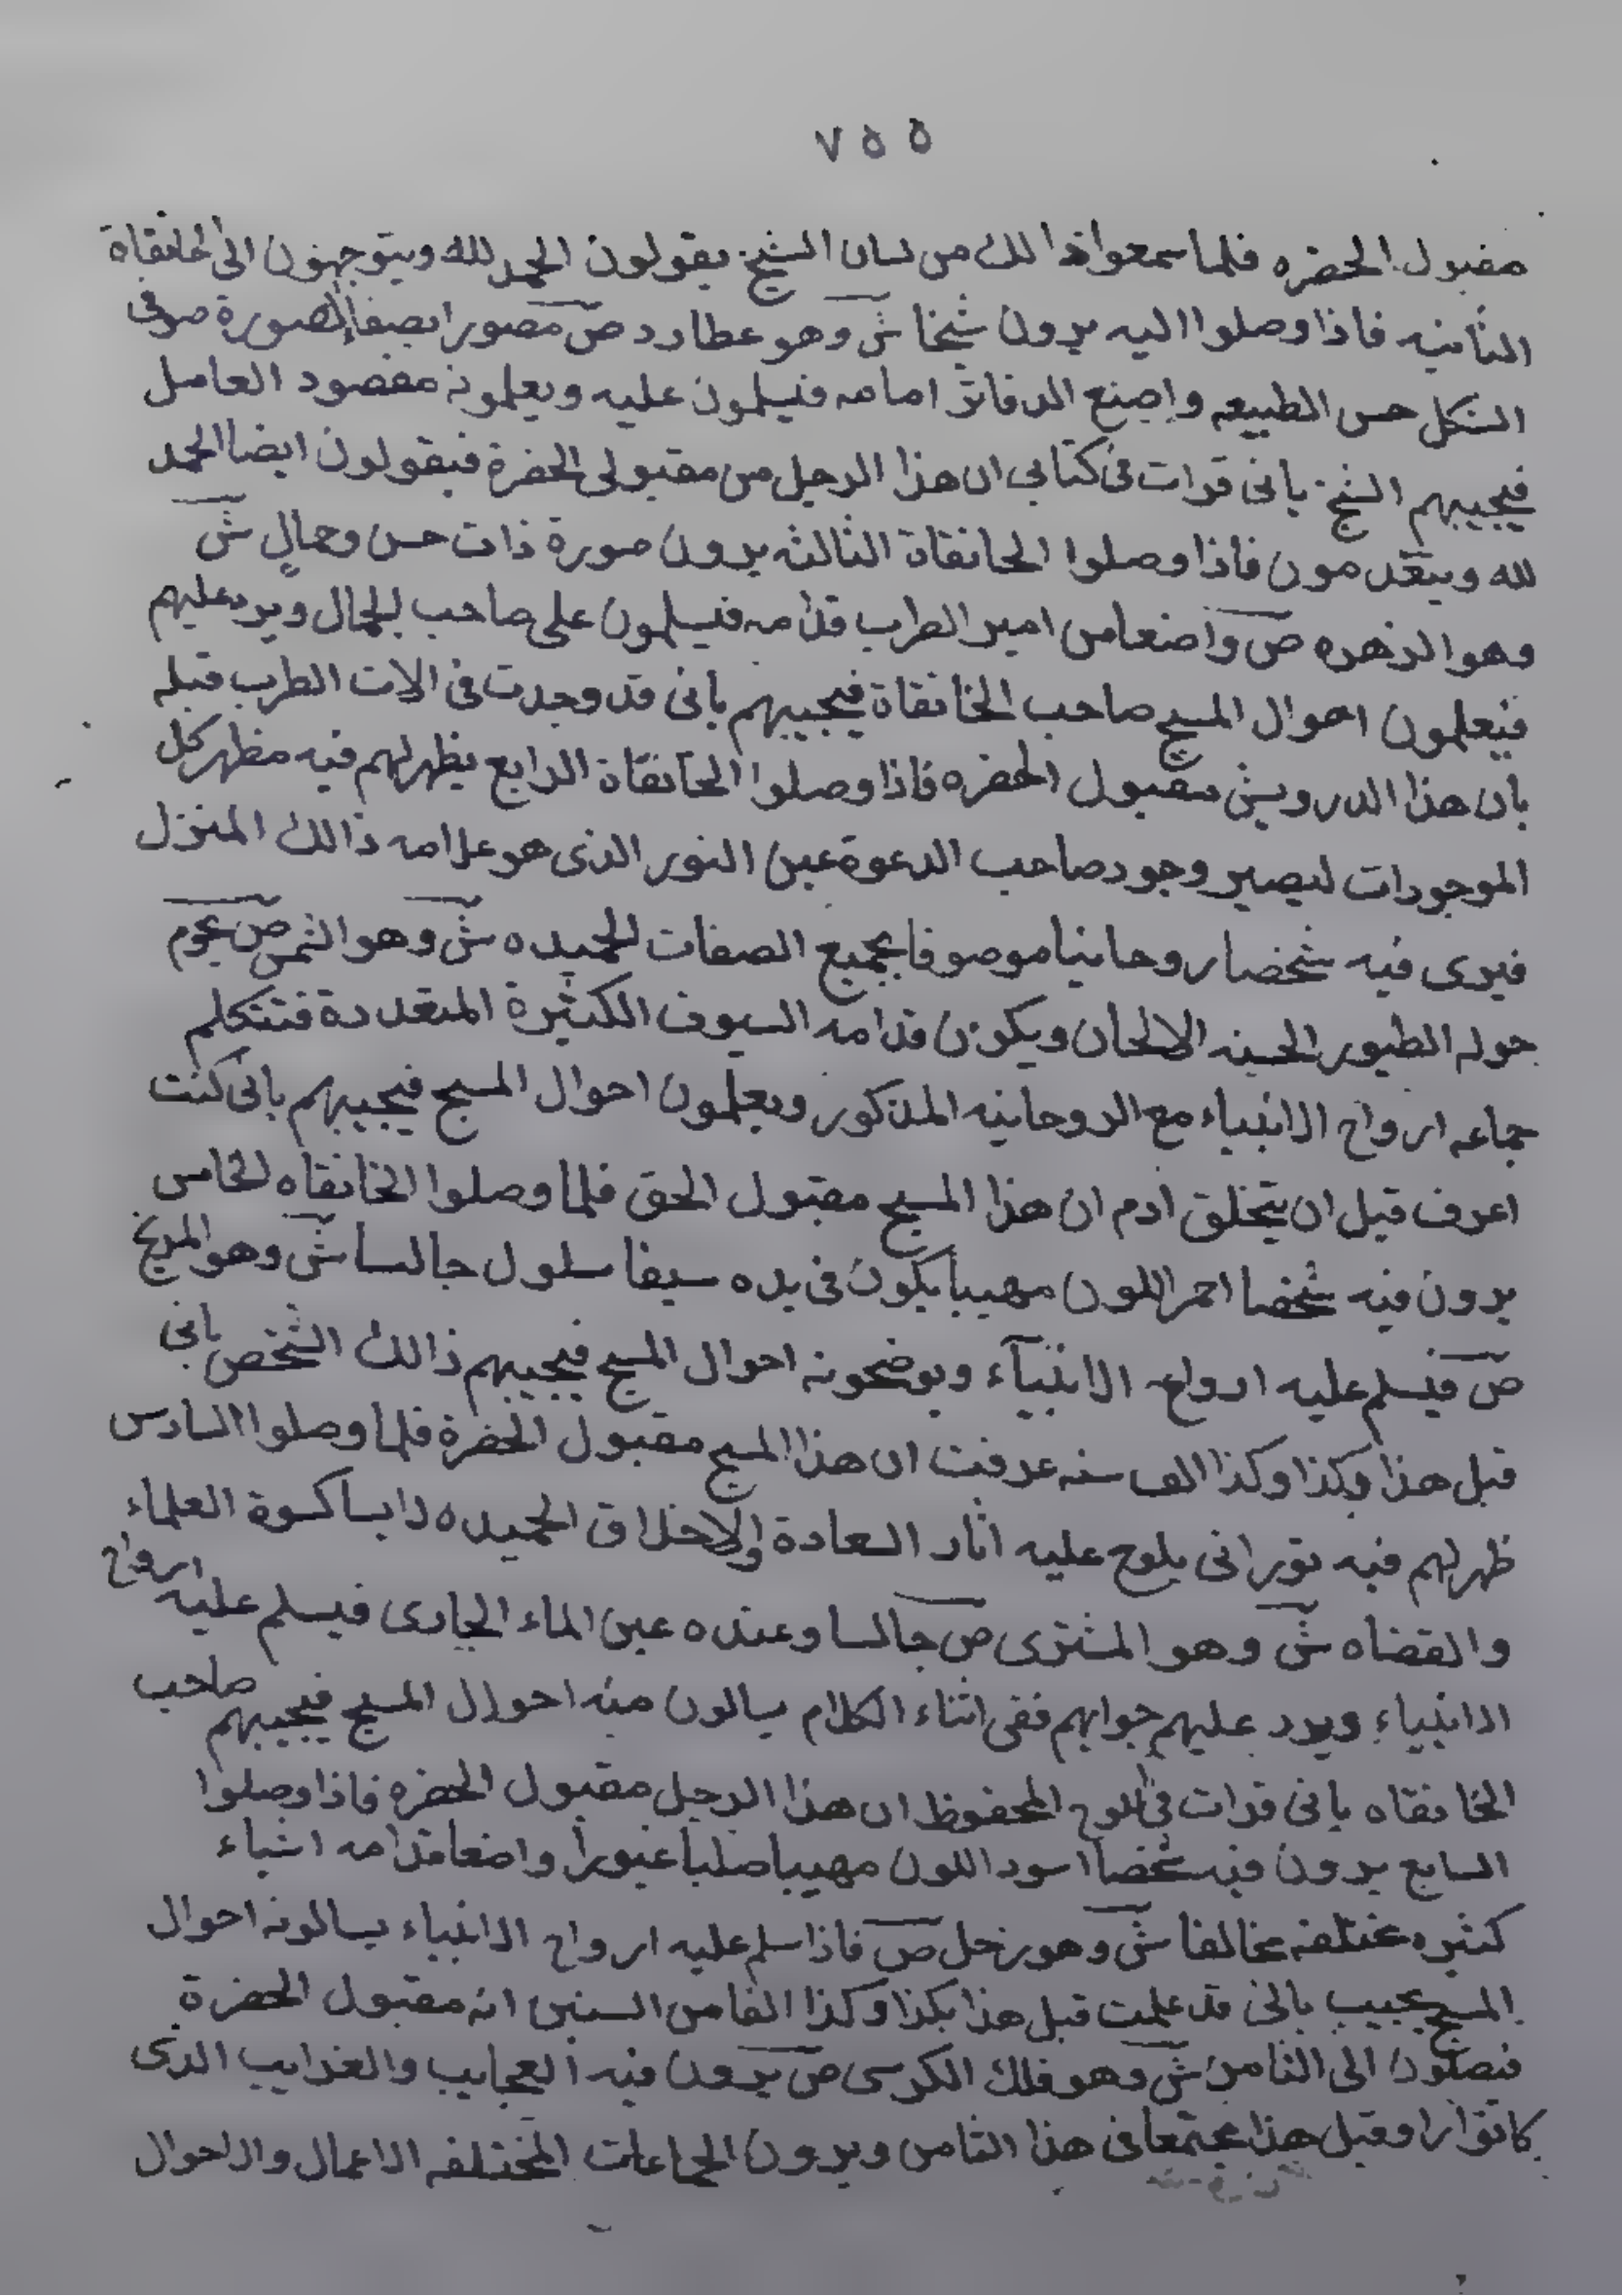 ٧٥٥
مقبول الحضره فلما سمعوا ذالك من لسان الشيخ يقولون الحمد لله ويتوجهون الى الخانقاة
الثانيه فاذا وصلوا اليه يرون شيخا ش وهو عطارد ص مصورا بصفا الصورة صوفى
الشكل حسن الطبيعه واضع الدفاتر امامه فيسلمون عليه ويعلمونه مقصود العامل
فيجيبهم الشيخ بانى قرات فى كتابى ان هذا الرجل من مقبولى الحضرة فيقولون ايضا الحمد
لله ويتقدمون فاذا وصلوا الخانقاة الثالثه يرون صورة ذات حسن وجمال ش
وهو الزهره ص واضعا من امير الطرب قدامه فيسلمون على صاحب الجمال ويرد عليهم
فيعلمون احوال المسبح صاحب الخانقاة فيجيبهم بانى قد وجدت فى الات الطرب قبله
بان هذا الدرويش مقبول الحضره فاذا وصلوا الخانقاة الرابع يظهر لهم فيه مظهر كل
الموجودات ليصير وجود صاحب الدعوة عين النور الذى هو علامه ذالك المنزل
فيرى فيه شخصا روحانيا موصوفا بجميع الصفات الحميده ش وهو الشمس ص يحوم
حوله الطيور الحسنه الالحان ويكون قدامه السيوف الكثيرة المتعددة فتتكلم
جماعه ارواح الانبياء مع الروحانيه المذكور ويعلمون احوال المسبح فيجيبهم بانى كنت
اعرف قبل ان يتخلق ادم ان هذا المسبح مقبول الحق فلما وصلوا الخانقاه الخامس
يرون فيه شخصا احمر اللون مهيبا يكون فى يده سيفا سلول جالسا ش وهو المريخ
ص فيسلم عليه ارواح الانبياء ويوضحونه احوال المسبح فيجيبهم ذالك الشخص بانى
قبل هذا وكذا وكذا الف سنه عرفت ان هذا المسبح مقبول الحضرة فلما وصلوا السادس
ظهر لهم فيه نورانى يلوح عليه اثار السعادة والاخلاق الحميده لابسا كسوة العلماء
والقضاه ش وهو المشترى ص جالسا وعنده عين الماء الجارى فيسلم عليه ارواح
الانبياء ويرد عليهم جوابهم ففى اثناء الكلام يسالون منه احوال المسبح فيجيبهم صاحب
الخانقاه بانى قرات فى اللوح المحفوظ ان هذا الرجل مقبول الحضره فاذا وصلوا
السابع يرون فيه شخصا اسود اللون مهيبا صلبا غيورا واضعا قدامه اشياء
كثيره مختلفه مخالفا ش وهو زحل ص فاذا سلم عليه ارواح الانبياء يسالونه احوال
المسبح يجيب بانى قد علمت قبل هذا بكذا وكذا الفا من السنين انه مقبول الحضرة
فيصلون الى الثامن ش وهو فلك الكرسى ص يرون فيه العجايب والغرايب الذى
كانوا راو قبل هذا مجتمعا فى هذا الثامن ويرون الجماعات المختلفه الاعمال والاحوال